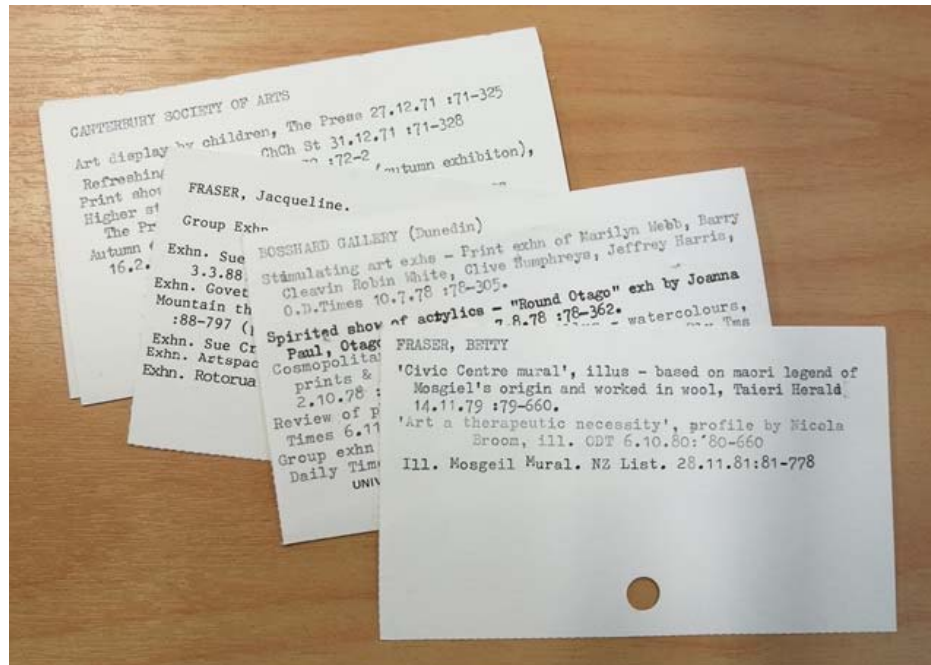 CANTERBURY SOCIETY OF ARTS
Art display by children, The Press 27.12.71 :71-325
Refreshing ChCh St 31.12.71 :71-328
Print show :72-2
Higher st autumn exhibiton),
The Pr
Autumn
16.2.
FRASER, Jacqueline.
Group Exhn
Exhn. Sue
3.3.88
Exhn. Govet
Mountain th
:88-797 (
Exhn. Sue Cr
Exhn. Artspac
Exhn. Rotorua
BOSSHARD GALLERY (Dunedin)
Stimulating art exhs - Print exhn of Marilyn Webb, Barry
Cleavin Robin White, Clive Humphreys, Jeffrey Harris,
O.D.Times 10.7.78 :78-305.
Spirited show of actylics - "Round Otago" exh by Joanna
Paul, Otago 7.8.78 :78-362.
Cosmopolita - watercolours,
prints &
2.10.78 :
Review of p
Times 6.11
Group exhn
Daily Time
UNIV
FRASER, BETTY
'Civic Centre mural', illus - based on maori legend of
Mosgiel's origin and worked in wool, Taieri Herald
14.11.79 :79-660.
'Art a therapeutic necessity', profile by Nicola
Broom, ill. ODT 6.10.80: 80-660
Ill. Mosgeil Mural. NZ List. 28.11.81:81-778